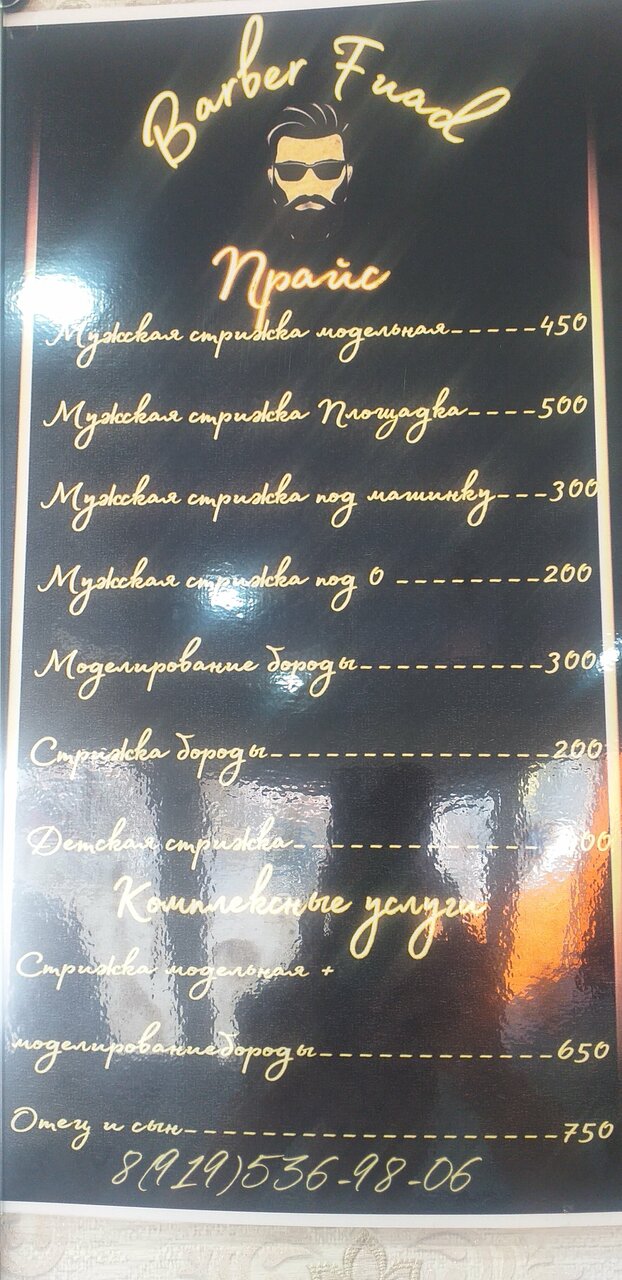 Barber Fuad
Прайс
Мужская стрижка модельная-----450
Мужская стрижка Площадка----500
Мужская стрижка под машинку---300
Мужская стрижка под 0 --------200
Моделирование бороды----------300
Стрижка бороды---------------200
Детская стрижка--------------
Комплексные услуги
Стрижка модельная +
моделированиебороды-------------650
Отец и сын---------------------750
8(919)536-98-06